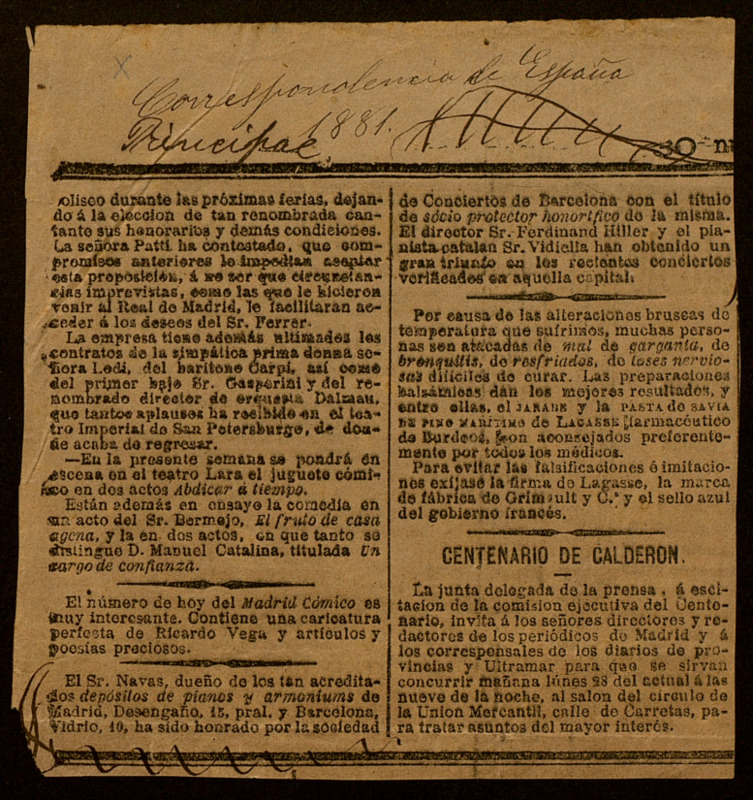 Correspondencia de España
Principal 1881.
oliseo durante las próximas ferias, dejan-
do á la eleccion de tan renombrada can-
tante sus honorarios y demás condiciones.
La señora Patti ha contestado, que com-
promisos anteriores le impedian aceptar
esta proposicion, á no ser que circunstan-
cias imprevistas, como las que le hicieron
venir al Real de Madrid, le facilitaran ac-
ceder á los deseos del Sr. Ferrer.
La empresa tiene además ultimados los
contratos de la simpática prima donna se-
ñora Ledi, del baritono Carpi, así como
del primer bajo Sr. Gasperini y del re-
nombrado director de orquesta Dalmau,
que tantos aplausos ha recibido en el tea-
tro Imperial de San Petersburgo, de don-
de acaba de regresar.
—En la presente semana se pondrá en
escena en el teatro Lara el juguete cómi-
co en dos actos Abdicar á tiempo.
Están además en ensayo la comedia en
un acto del Sr. Bermejo, El fruto de casa
agena, y la en dos actos, en que tanto se
distingue D. Manuel Catalina, titulada Un
cargo de confianza.
El número de hoy del Madrid Cómico es
muy interesante. Contiene una caricatura
perfecta de Ricardo Vega y artículos y
poesías preciosos.
El Sr. Navas, dueño de los tan acredita-
dos depósitos de pianos y armoniums de
Madrid, Desengaño, 15, pral. y Barcelona,
Vidrio, 10, ha sido honrado por la sociedad
de Conciertos de Barcelona con el título
de sócio protector honorífico de la misma.
El director Sr. Ferdinand Hiller y el pia-
nista catalan Sr. Vidiella han obtenido un
gran triunfo en los recientes conciertos
verificados en aquella capital.
Por causa de las alteraciones bruscas de
temperatura que sufrimos, muchas perso-
nas son atacadas de mal de garganta, de
bronquitis, de resfriados, de toses nervio-
sas difíciles de curar. Las preparaciones
balsámicas dan los mejores resultados, y
entre ellas, el JARABE y la PASTA DE SAVIA
DE PINO MARÍTIMO DE LAGASSE farmacéutico
de Burdeos, son aconsejados preferente-
mente por todos los médicos.
Para evitar las falsificaciones é imitacio-
nes exíjase la firma de Lagasse, la marca
de fábrica de Grimault y C.ª y el sello azul
del gobierno francés.
CENTENARIO DE CALDERON.
La junta delegada de la prensa, á esci-
tacion de la comision ejecutiva del Cente-
nario, invita á los señores directores y re-
dactores de los periódicos de Madrid y á
los corresponsales de los diarios de pro-
vincias y Ultramar para que se sirvan
concurrir mañana lúnes 28 del actual á las
nueve de la noche, al salon del círculo de
la Union Mercantil, calle de Carretas, pa-
ra tratar asuntos del mayor interés.